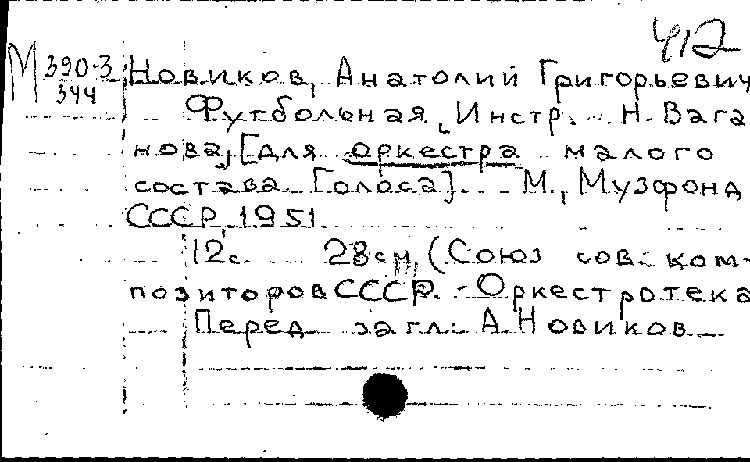 412
М 390-3
344
Новиков, Анатолий Григорьевич
Футбольная. Инстр. Н. Вага
нова, [для оркестра малого
состава. [Голоса]. М., Музфонд
СССР, 1951.
12 с. 28 см, (Союз сов. ком-
позиторов СССР. - Оркестротека
Перед загл.: А. Новиков